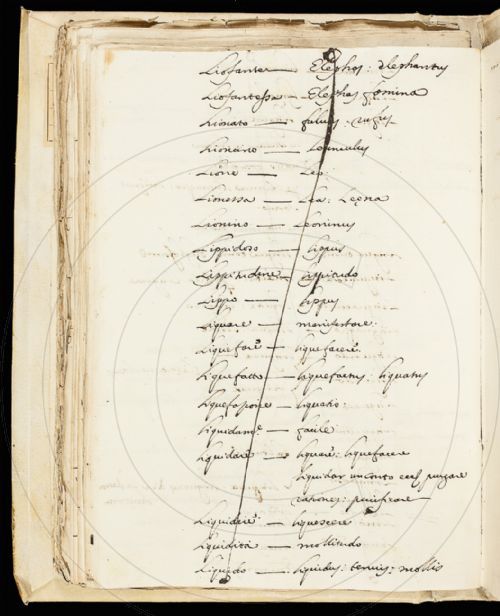 Liofante — Elephas: elephantus
Liofantessa — Elephas fęmina
Lionato — fuluus: rufus
Lioncino — Leunculus
Lione — Leo
Lionessa — Lea: Leęna
Lionino — Leoninus
Lippidoso — lippus
Lippitudine — lippitudo
Lippo — lippus
Liquare — manifestare:
Liquefare — liquefacere
Liquefatto — liquefactus: liquatus
liquefazione — liquatio:
— facile
liquidare — liquare: liquefacere
liquidar un conto
rationes: purificare
Liquidire — liquescere
Liquidità — mollitudo
Liquido — liquidus: tenuis: mollis